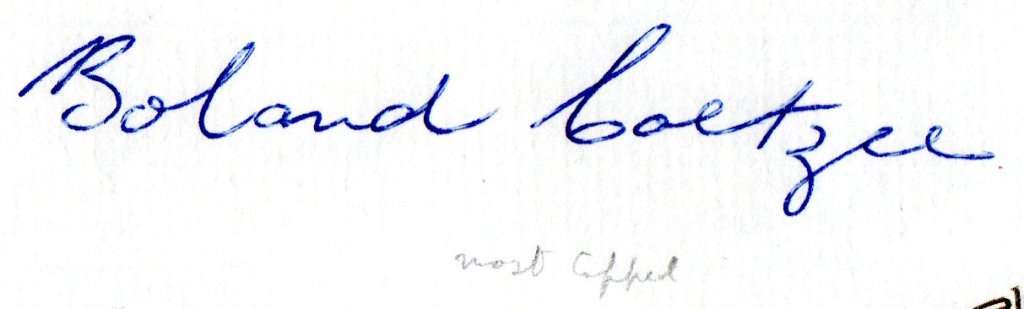 Boland Coetzee
most capped